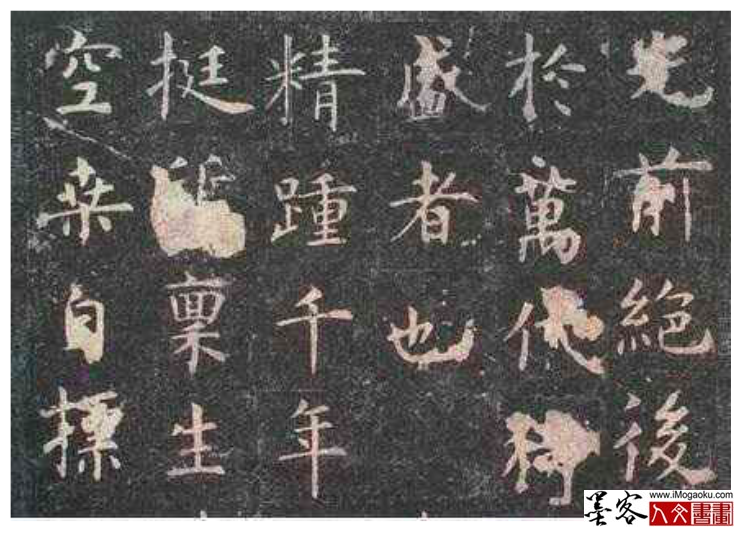 光前絕後
於萬代
盛者也
精踵千年
挺 稟生
空桑自標
墨客
www.iMogaoku.com
人文書畫